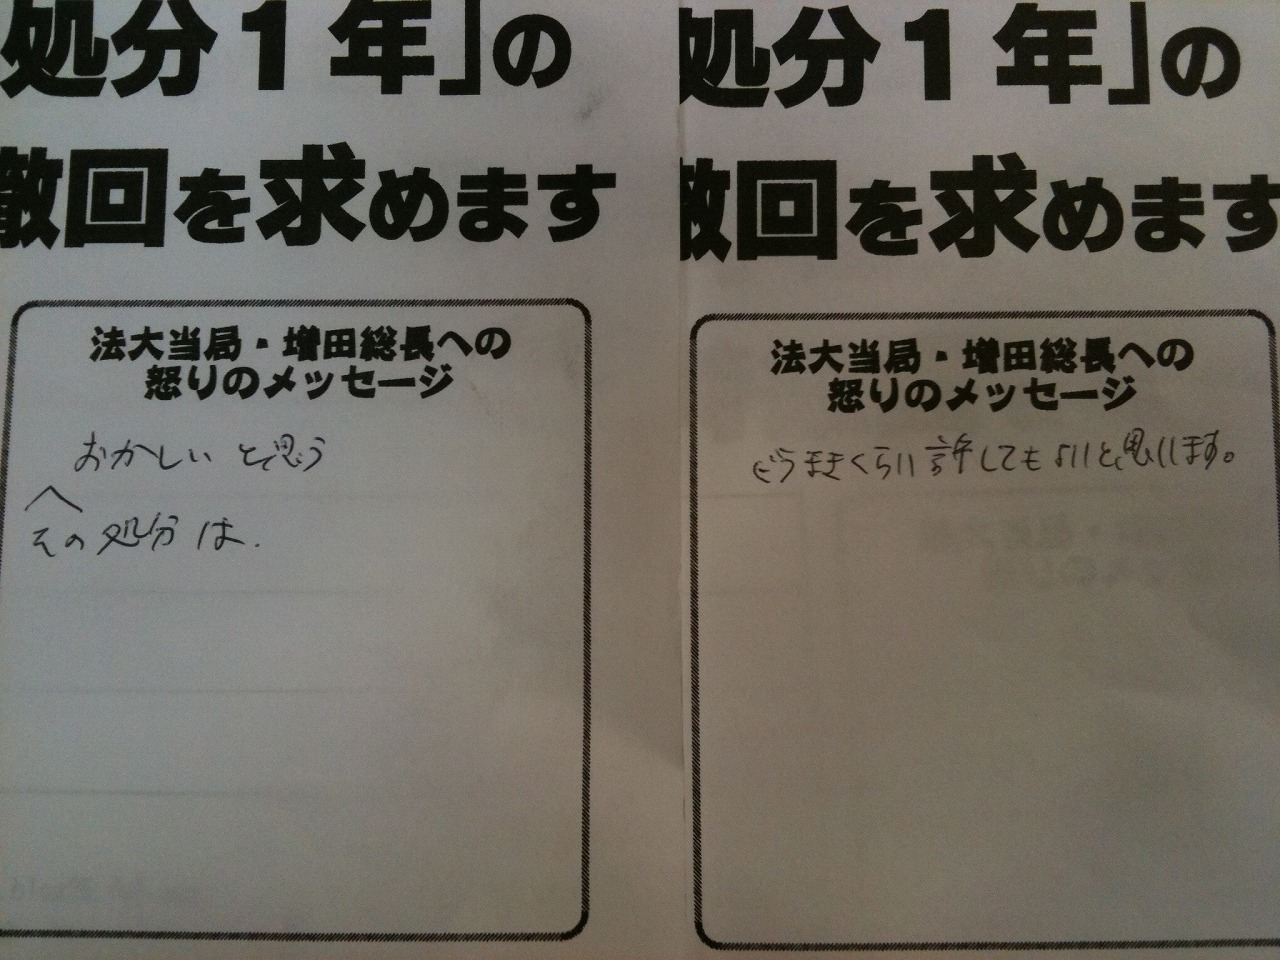 処分1年」の
撤回を求めます
法大当局・増田総長への
怒りのメッセージ
おかしいと思う
その処分は.
処分1年」の
撤回を求めます
法大当局・増田総長への
怒りのメッセージ
くらい許してもよいと思います。